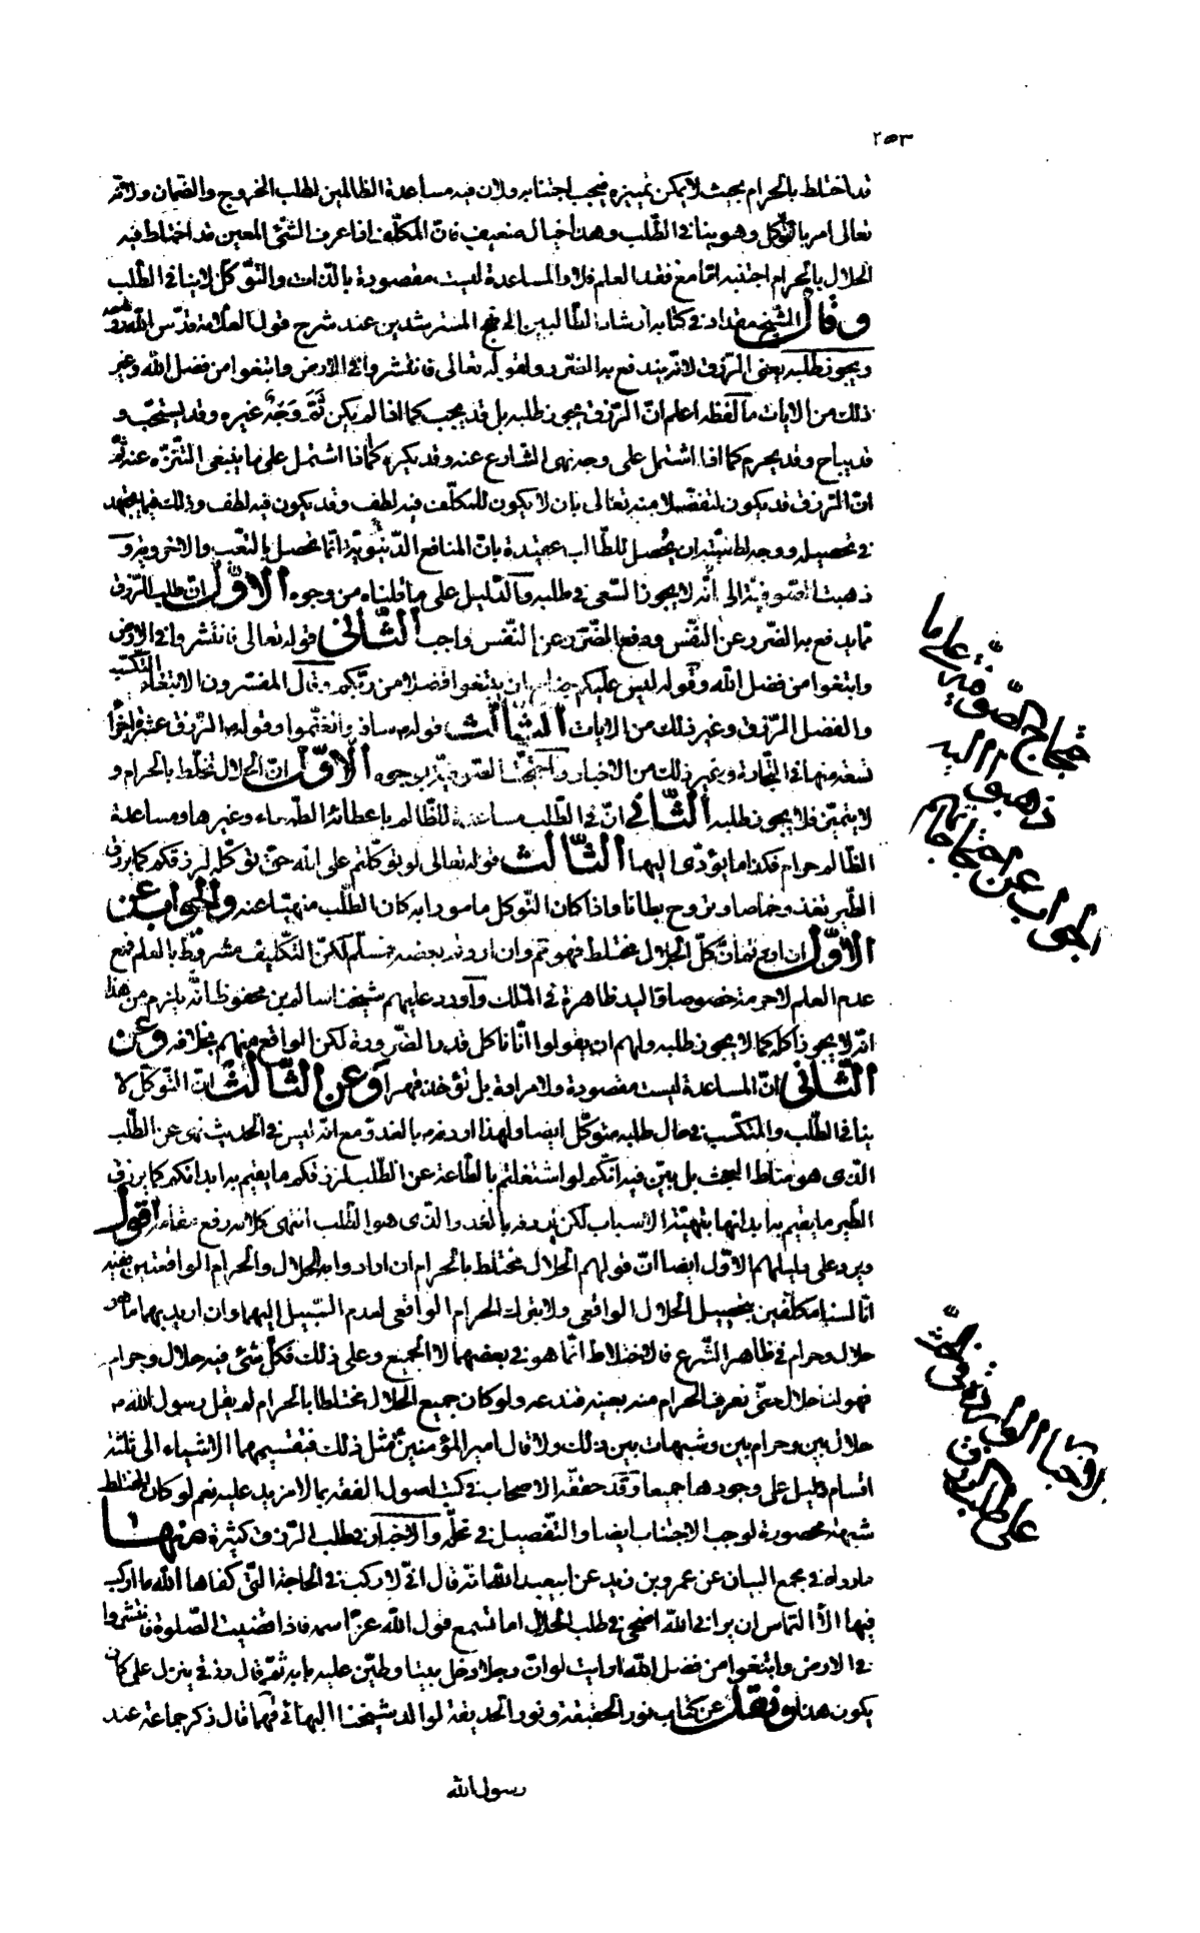 ٢٥٣
قد اختلط بالحرام بحيث لا يمكن تميزه فيجب اجتنابه ولان فيه مساعدة الظالمين لطلب الخروج والضمان ولانه
تعالى امر بالتوكل وهو ينافي الطلب وهذا خيال ضعيف فان المكلف اذا عرف الشئ المعين قد اختلط فيه
الحلال بالحرام اجتنبه اما مع فقد العلم فلا والمساعدة ليست مقصودة بالذات والتوكل لا ينافي الطلب
وقال الشيخ مقداد في كتابه ارشاد الطالبين الى نهج المسترشدين عند شرح قول العلامة قدس الله
ويجوز طلبه يعني الرزق لانه يندفع به الضرر ولقوله تعالى فانتشروا في الارض وابتغوا من فضل الله وغير
ذلك من الايات ما لفظه اعلم ان الرزق يجوز طلبه بل قد يجب كما اذا لم يكن ثم وجه غيره وقد يستحب و
قد يباح وقد يحرم كما اذا اشتمل على وجه نهى الشارع عنه وقد يكره كما اذا اشتمل على ما ينبغي التنزه عنه ثم
ان الرزق قد يكون تفضلا منه تعالى بان لا يكون للمكلف فيه لطف وقد يكون فيه لطف وذلك فيما يجتهد
في تحصيله ووجه لطفيته ان يحصل للطالب عقيدة بان المنافع الدنيوية انما تحصل بالتعب والاخروية و
ذهبت الصوفية الى انه لا يجوز السعي في طلبه والدليل على ما قلناه من وجوه الاول ان طلب الرزق
مما يدفع به الضرر عن النفس ودفع الضرر عن النفس واجب الثاني قوله تعالى فانتشروا في الارض
وابتغوا من فضل الله وقوله ليس عليكم جناح ان تبتغوا فضلا من ربكم وقال المفسرون الابتغاء التكسب
والفضل الرزق وغير ذلك من الايات الثالث قوله ص سافروا تغنموا وقوله ص الرزق عشرة اجزاء
تسعة منها في التجارة وغير ذلك من الاخبار واحتجت الصوفية بوجوه الاول ان الحلال مختلط بالحرام و
لا يتميز فلا يجوز طلبه الثاني ان في الطلب مساعدة للظالم باعطائه الطهماء وغيرها ومساعدة
الظالم حرام فكذا ما يؤدي اليها الثالث قوله تعالى لو توكلتم على الله حق توكله لرزقكم كما يرزق
الطير تغدو خماصا وتروح بطانا واذا كان التوكل مامورا به كان الطلب منهيا عنه والجواب عن
الاول ان اردتم ان كل الحلال مختلط فهو ثم وان اردتم بعضه فمسلم لكن التكليف مشروط بالعلم فمع
عدم العلم لا حرمة خصوصا واليد ظاهرة في الملك واورد عليهم شيخنا سالم بن محفوظ انه يلزم من هذا
انه لا يجوز اكله كما لا يجوز طلبه ولهم ان يقولوا انا ناكل قدر الضرورة لكن الواقع منهم بخلافه وعن
الثاني ان المساعدة ليست مقصودة ولا مرادة بل تؤخذ قهرا وعن الثالث ان التوكل لا
ينافي الطلب والمتكسب في حال طلبه متوكل ايضا ولهذا اردفه بالغدو مع انه ليس في الحديث نهى عن الطلب
الذي هو مناط البحث بل يبين فيه انكم لو اشتغلتم بالطاعة عن الطلب لرزقكم ما يقيم به ابدانكم كما يرزق
الطير ما يقيم به ابدانها بتهيئة الاسباب لكن اردفه بالغدو الذي هو الطلب انتهى كلامه رفع مقامه اقول
ويرد على دليلهم الاول ايضا ان قولهم الحلال مختلط بالحرام ان ارادوا به الحلال والحرام الواقعيين ففيه
انا لسنا مكلفين بتحصيل الحلال الواقعي ولا بترك الحرام الواقعي لعدم السبيل اليهما وان اريد بهما ما هو
حلال وحرام في ظاهر الشرع فالاختلاط انما هو في بعضهما لا الجميع وعلى ذلك فكل شئ فيه حلال وحرام
فهو لنا حلال حتى نعرف الحرام منه بعينه فندعه ولو كان جميع الحلال مختلطا بالحرام لم يقل رسول الله ص
حلال بين وحرام بين وشبهات بين ذلك ولا قال امير المؤمنين ع مثل ذلك فتقسيمهما الاشياء الى ثلثة
اقسام دليل على وجودها جميعا وقد حققه الاصحاب في كتب اصول الفقه بما لا مزيد عليه نعم لو كان المختلط
شبهة محصورة لوجب الاجتناب ايضا والتفصيل في محله والاخبار في طلب الرزق كثيرة منها
ما رواه في مجمع البيان عن عمرو بن زيد عن ابي عبد الله ع انه قال اني لاركب في الحاجة التي كفاها الله ما اركب
فيها الا التماس ان يراني الله اضحي في طلب الحلال اما تسمع قول الله عز اسمه فاذا قضيت الصلوة فانتشروا
في الارض وابتغوا من فضل الله ارايت لو ان رجلا دخل بيتا وطين عليه بابه ثم قال رزقي ينزل علي كان
يكون هذا ونقل عن كتاب نور الحقيقة ونور الحديقة لوالد شيخنا البهائي فيما قال ذكر جماعة عند
رسول الله
احتجاج الصوفية على ما
ذهبوا اليه
الجواب عن احتجاجاتهم
الاخبار الواردة في الحث
على طلب الرزق